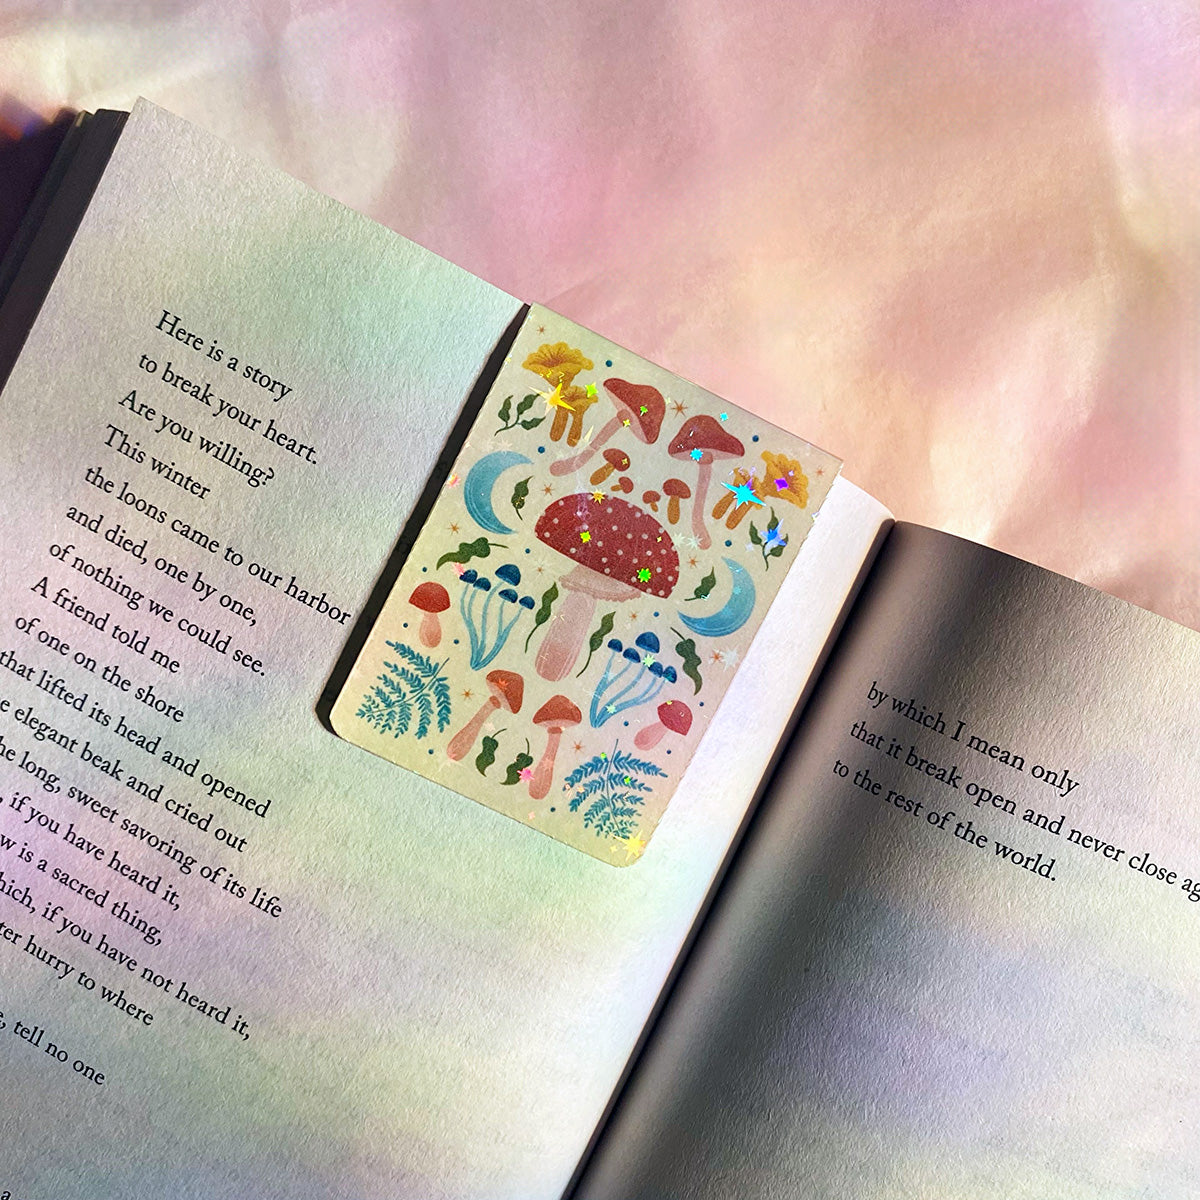 Here is a story
to break your heart.
Are you willing?
This winter
the loons came to our harbor
and died, one by one,
of nothing we could see.
A friend told me
of one on the shore
that lifted its head and opened
elegant beak and cried out
long, sweet savoring of its life
if you have heard it,
is a sacred thing,
if you have not heard it,
hurry to where
tell no one
by which I mean only
that it break open and never close
to the rest of the world.